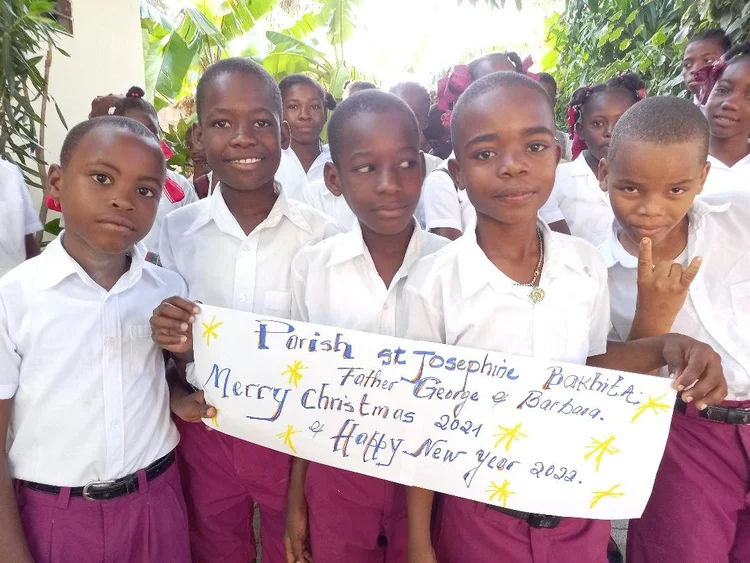 Parish St Josephine Bakhita.
Father George & Barbara.
Merry Christmas 2021
& Happy New year 2022.